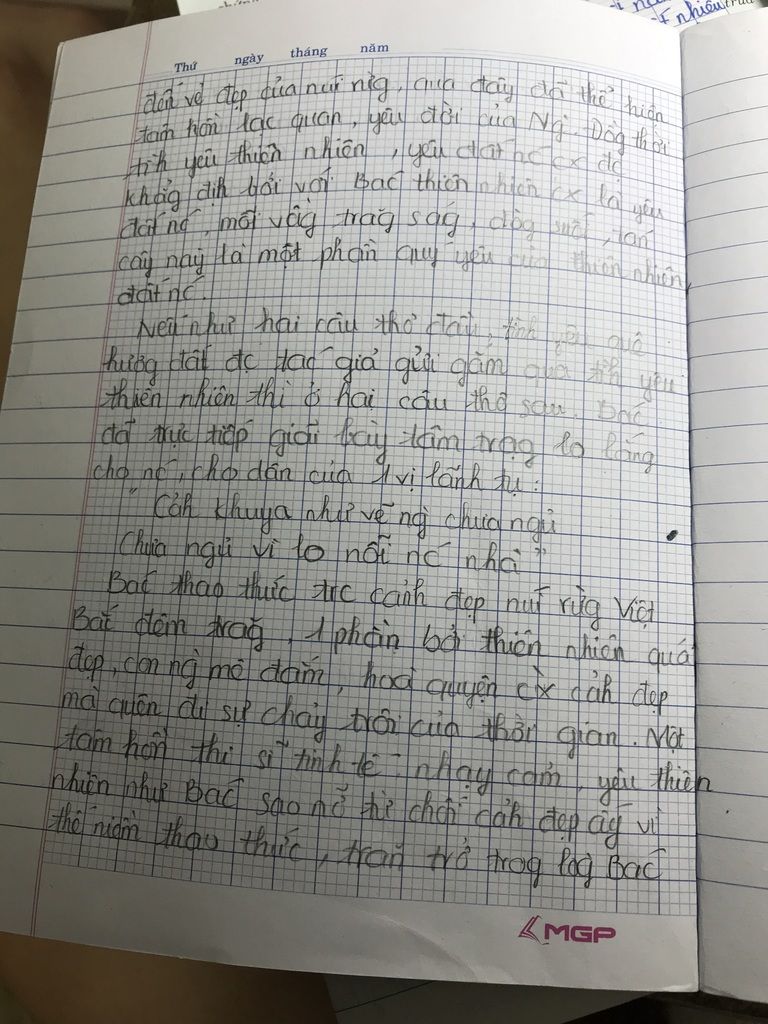 nhiều
Thứ ngày tháng năm
đến vẻ đẹp của núi rừg, qua đây đã thể hiện
tâm hồn lạc quan, yêu đời của Ng. Đồg thời
tìh yêu thiên nhiên, yêu đất nc cx đc
khẳg địh bởi với Bác thiên nhiên cx là yêu
đất nc, một vầg trăg ság, dòg suối, tán
cây này là một phần quý yêu của thiên nhiên,
đất nc.
Nếu như hai câu thơ đầu, tình yêu quê
hươg đất đc tác giả gửi gắm qua tìh yêu
thiên nhiên thì ở hai câu thơ sau. Bác
đã trực tiếp giãi bày tâm trạg lo lắng
cho nc, cho dân của 1 vị lãnh tụ:
" Cảh khuya như vẽ ng` chưa ngủ
Chưa ngủ vì lo nỗi nc nhà"
Bác thao thức trc cảnh đẹp núi rừg Việt
Bắc đêm trăg, 1 phần bởi thiên nhiên quá
đẹp, con ng` mê đắm, hoà quyện cx cảh đẹp
mà quên đi sự chảy trôi của thời gian. Một
tâm hồn thi sĩ tinh tế - nhạy cảm, yêu thiên
nhiên như Bác sao nỡ từ chối cảh đẹp ấy vì
thế niềm thao thức, trăn trở trog lòg Bác
MGP